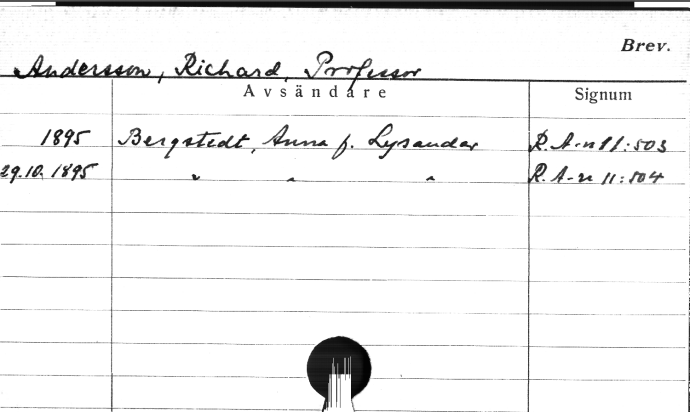 Brev.
Andersson, Richard, Professor
Avsändare Signum
1895 Bergstedt, Anna f. Lysander R. A-n 11:503
29.10. 1895 " " " R. A-n 11:504